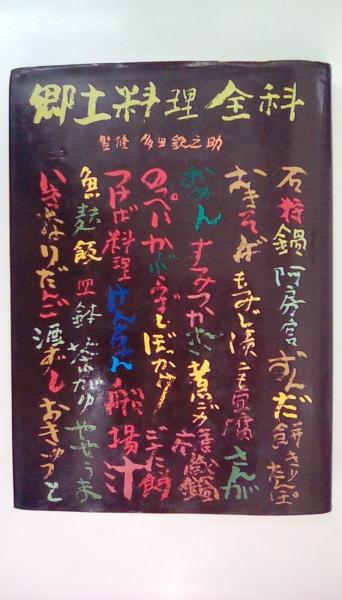 郷土料理全科
監修 多田鉄之助
石狩鍋 阿房宮 ずんだ餅 きりたんぽ
おきそば もみじ漬 こも豆腐 さんが
おめん すみつかれ 煮ごめ
のっぺい かぶらずし ぼかけ ごへい餅
つけば料理 けんちん 船場汁
魚麩飯 皿鉢 やせうま
いきなりだんご 酒ずし おきゅうと